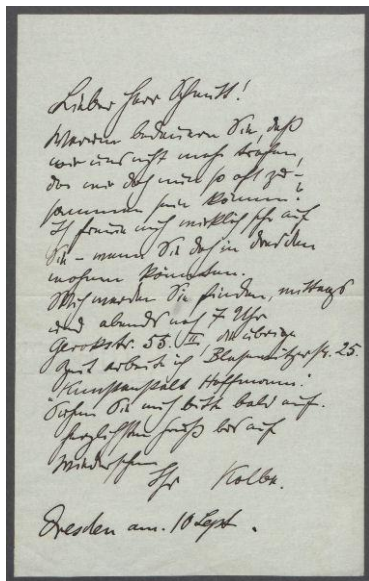 Lieber Herr Schmitt!
Warum bedauern Sie, daß
wir uns nicht mehr trafen,
da wir doch nun so oft zu-
sammen sein können?
Ich freue mich wirklich sehr auf
Sie – wenn Sie doch in Dresden
wohnen könnten.
Mich werden Sie finden, mittags
und abends nach 7 Uhr
Gerokstr. 55. III, die übrige
Zeit arbeite ich Blasewitzerstr. 25.
Kunstanstalt Hoffmann.
Suchen Sie mich bitte bald auf.
Herzlichen Gruß bis auf
Wiedersehen
Ihr Kolbe.
Dresden am. 10 Sept.